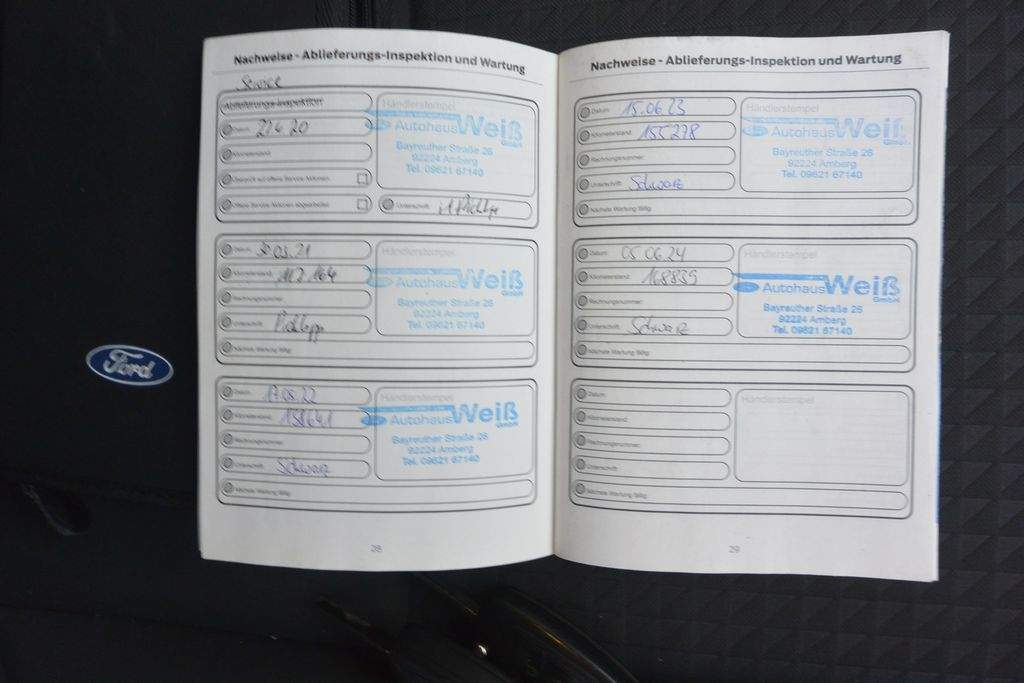 Nachweise - Ablieferungs-Inspektion und Wartung
Service
Ablieferungs-Inspektion
Händlerstempel
Datum:
Autohaus Weiß
GmbH
Bayreuther Straße 26
92224 Amberg
Tel. 09621 67140
Kilometerstand:
Unterschrift:
Datum: 30.03.21
Händlerstempel
Kilometerstand: 117.164
Autohaus Weiß
GmbH
Rechnungsnummer:
Bayreuther Straße 26
92224 Amberg
Tel. 09621 67140
Unterschrift:
Nächste Wartung fällig:
Datum: 17.05.22
Händlerstempel
Kilometerstand: 138641
Autohaus Weiß
GmbH
Rechnungsnummer:
Bayreuther Straße 26
92224 Amberg
Tel. 09621 67140
Unterschrift: Schwarz
Nächste Wartung fällig:
28
Nachweise - Ablieferungs-Inspektion und Wartung
Datum: 15.06.23
Händlerstempel
Kilometerstand: 155278
Autohaus Weiß
GmbH
Rechnungsnummer:
Bayreuther Straße 26
92224 Amberg
Tel. 09621 67140
Unterschrift: Schwarz
Nächste Wartung fällig:
Datum: 05.06.24
Händlerstempel
Kilometerstand: 168839
Autohaus Weiß
GmbH
Rechnungsnummer:
Bayreuther Straße 26
92224 Amberg
Tel. 09621 67140
Unterschrift: Schwarz
Nächste Wartung fällig:
Datum:
Händlerstempel
Kilometerstand:
Rechnungsnummer:
Unterschrift:
Nächste Wartung fällig:
29
Ford